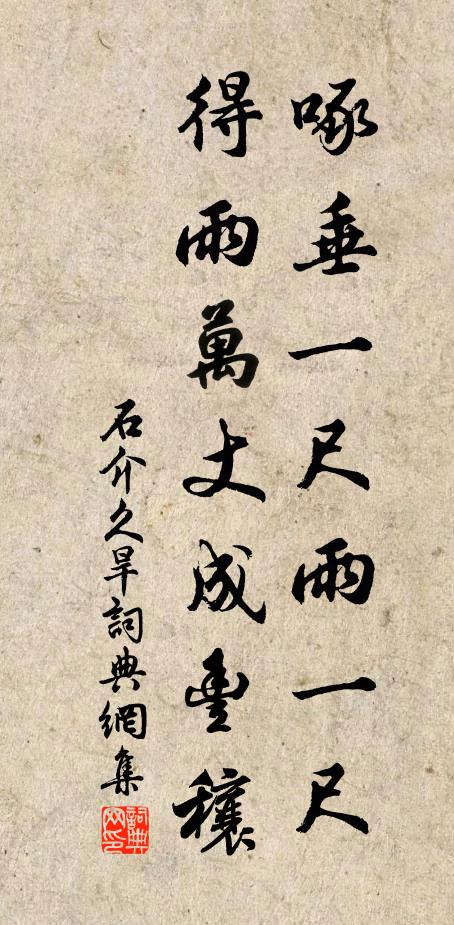 啄垂一尺雨一尺
得雨萬丈成豊穰
石介久旱詞典網集
詞典網印